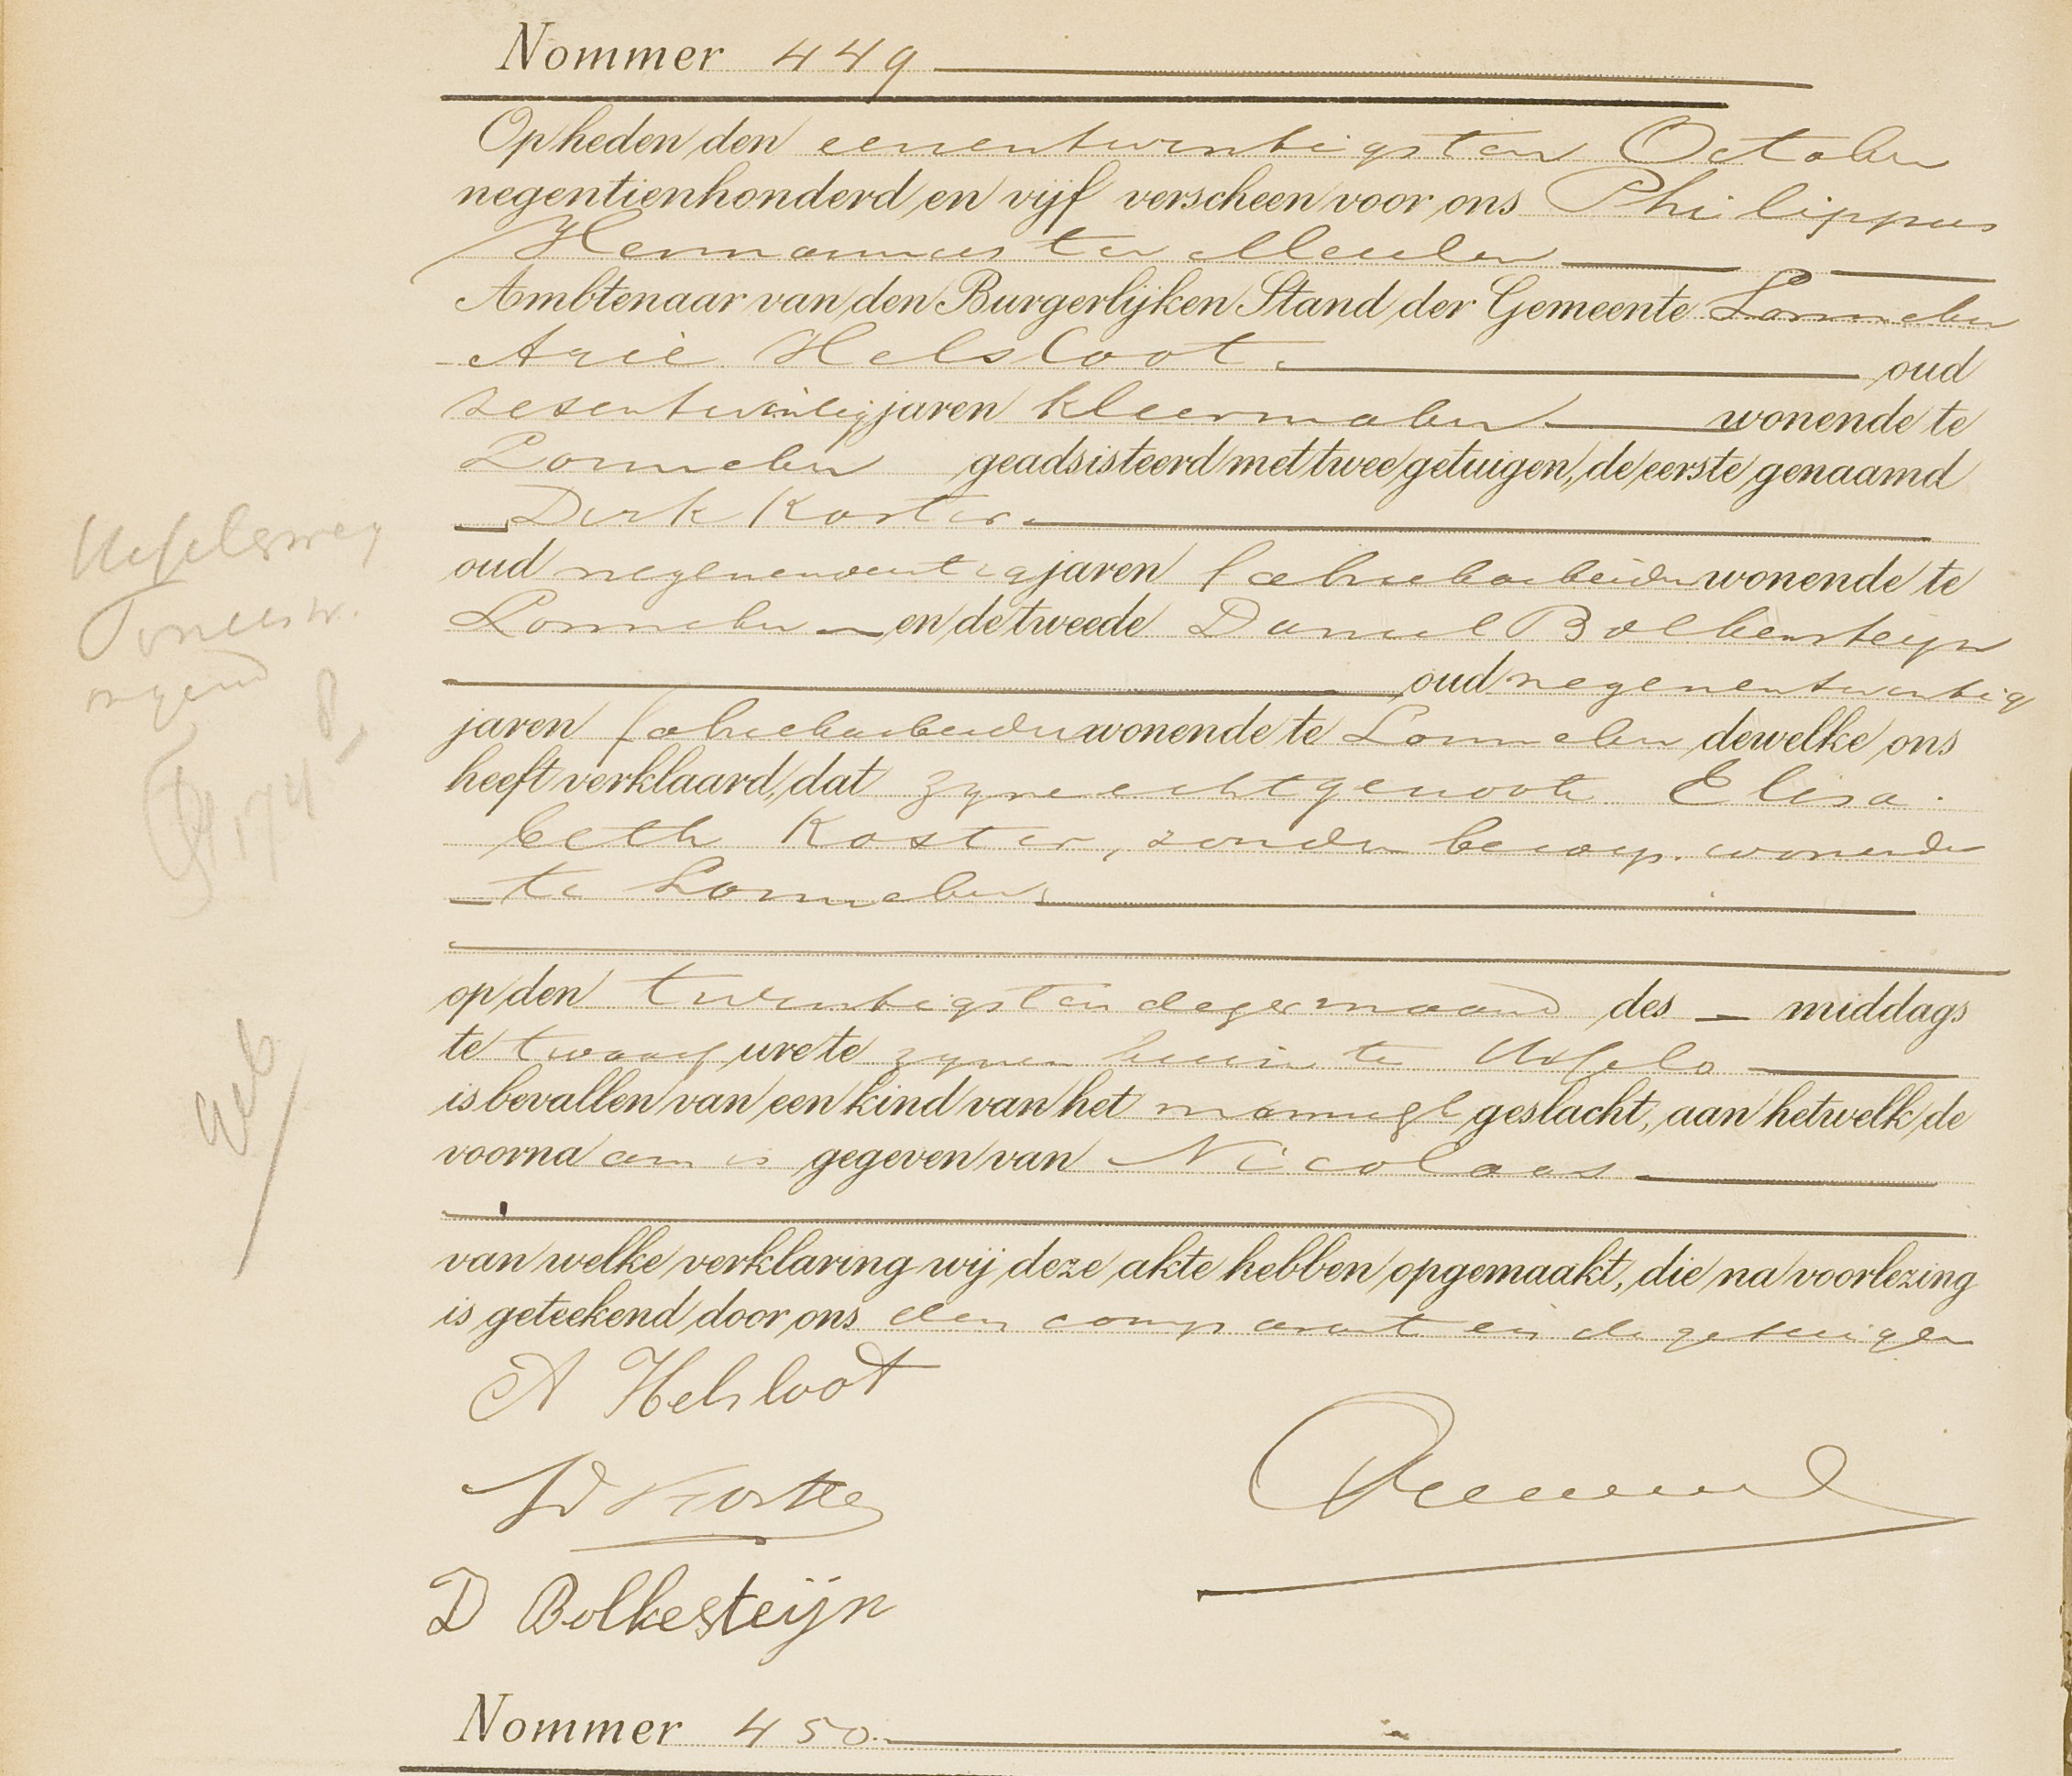 Nommer 449
Op heden den eenentwintigsten October
negentienhonderd en vijf verscheen voor ons Philippus
Hermannus ter Meulen
Ambtenaar van den Burgerlijken Stand der Gemeente Lonneker
Arie Helsloot, oud
zesentwintig jaren kleermaker wonende te
Lonneker geadsisteerd met twee getuigen, de eerste genaamd
Dirk Koster
oud negenentwintig jaren fabriekarbeider wonende te
Lonneker en de tweede Daniel Bolkensteijn
oud negenentwintig
jaren fabriekarbeider wonende te Lonneker dewelke ons
heeft verklaard, dat zyne echtgenoote Elisa
beth Koster, zonder beroep, wonende
te Lonneker,
op den twintigsten dezer maand des middags
te twaalf ure te zynen huize te Usselo
is bevallen van een kind van het mannelyk geslacht, aan hetwelk de
voornaam is gegeven van Nicolaas
van welke verklaring wij deze akte hebben opgemaakt, die na voorlezing
is geteekend door ons den comparant en de getuigen
A Helsloot
D Koster
D Bolkesteijn
Nommer 450
Usselerweg
174